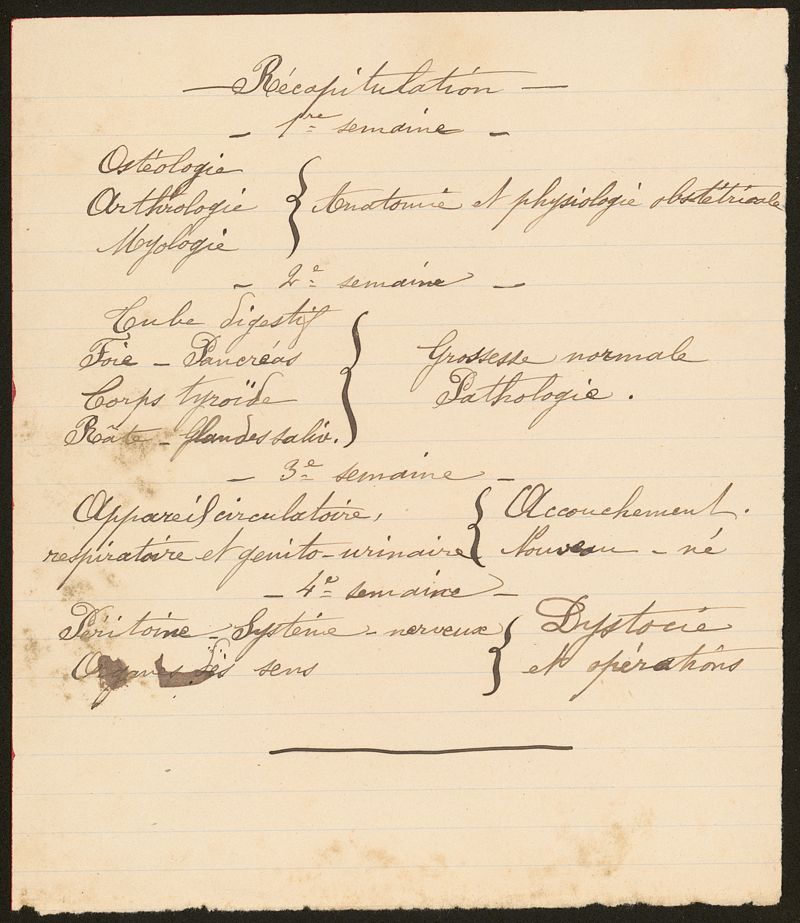 — Récapitulation —
- 1re semaine -
Ostéologie
Arthrologie } Anatomie et physiologie obstétricale
Myologie
- 2e semaine -
Tube digestif
Foie - Pancréas } Grossesse normale
Corps tyroïde Pathologie.
Râte - Glandes saliv.
- 3e semaine -
Appareil circulatoire, { Accouchement.
respiratoire et génito-urinaire Nouveau-né
- 4e semaine -
Péritoine - Système - nerveux } Dystocie
Organes des sens et opérations